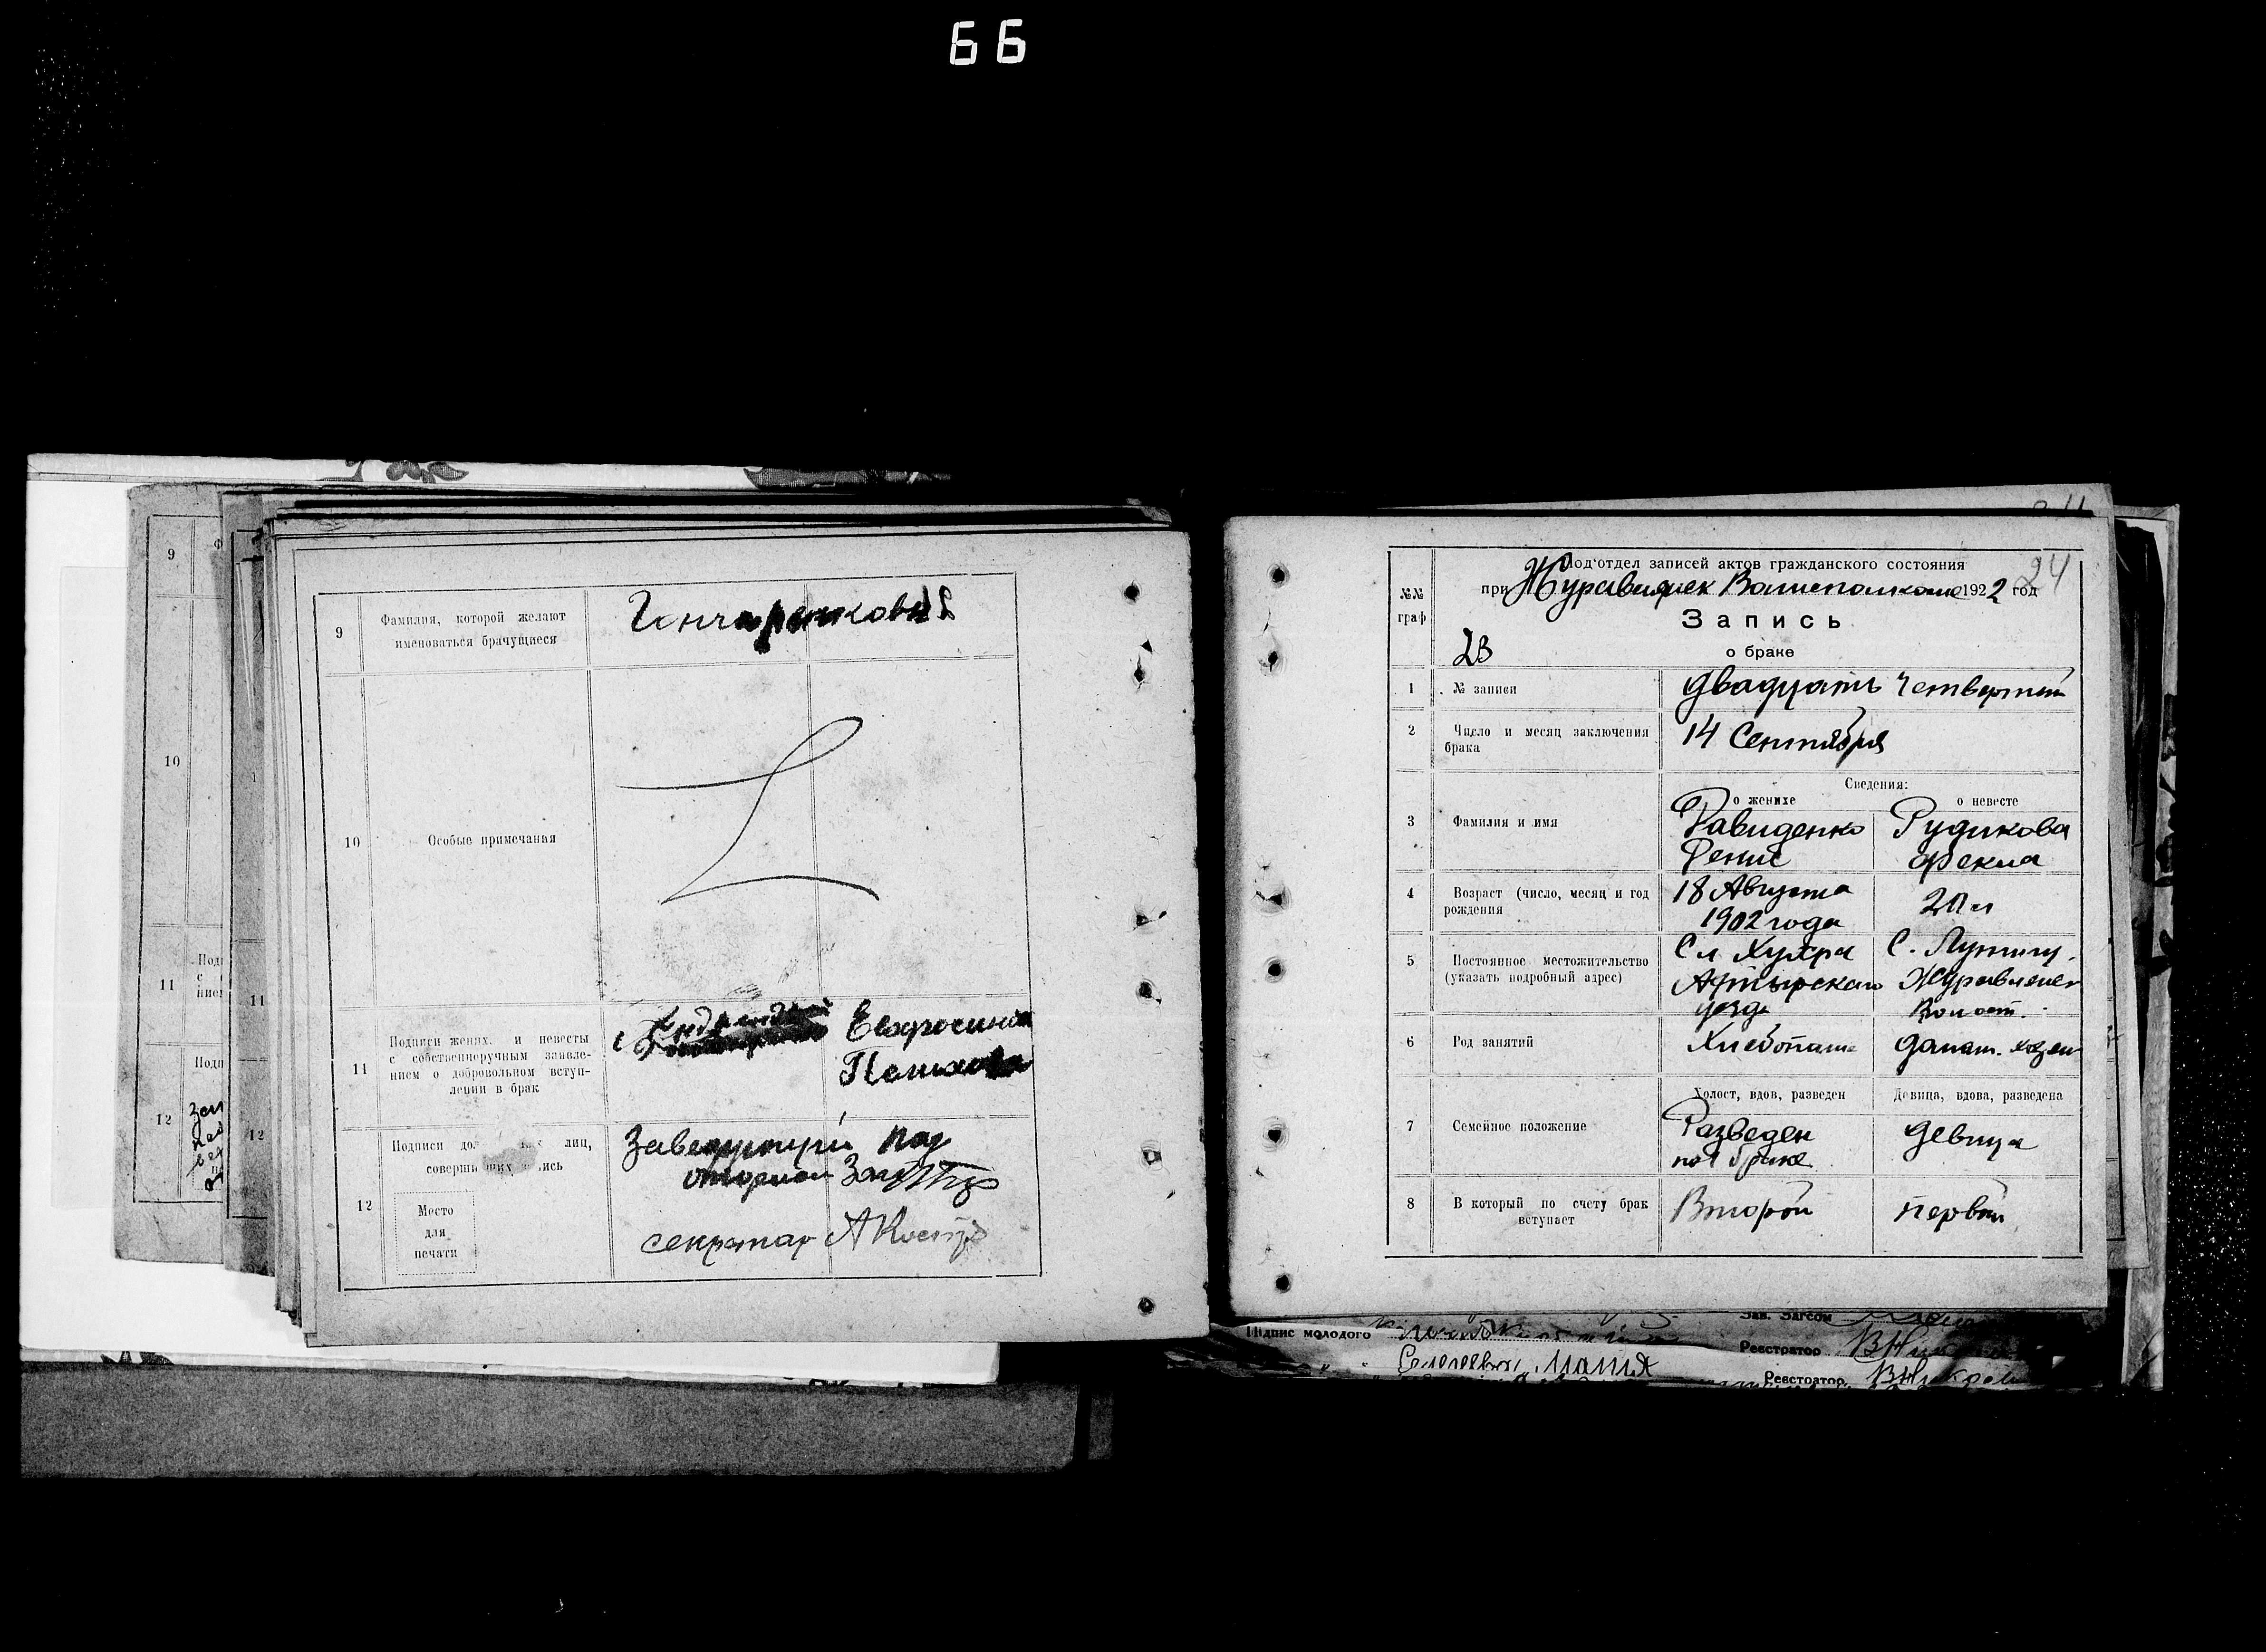 66
9
Фамилия, которой желают
именоваться брачущиеся
Гончаренковы
10
Особые примечания
11
Подписи жених. и невесты
с собственноручным заявле-
нием о добровольном вступ-
лении в брак
Евфросиния
12
Подписи дол лиц,
соверши их
Место
для
печати
Заведующий под
отделом
секретар
9
10
11
12
11
12
24
№№
граф
Под‘отдел записей актов гражданского состояния
при 1922 год
Запись
о браке
23
1
№ записи
двадцать четвертый
2
Число и месяц заключения
брака
14 Сентября
Сведения:
о женихе
о невесте
3
Фамилия и имя
Давиденко
Денис
Рудикова
Фекла
4
Возраст (число, месяц и год
рождения
18 Августа
1902 года
5
Постоянное местожительство
(указать подробный адрес)
Сл Хухра
уезда
С.
Волост.
6
Род занятий
Хлебопаш
7
Семейное положение
Холост, вдов, разведен
Девица, вдова, разведена
Разведен
по 1 браке
девица
8
В который по счету брак
вступает
Второй
первый
Підпис молодого
Зав. Загсом
Реестратор
Мария
Реестратор